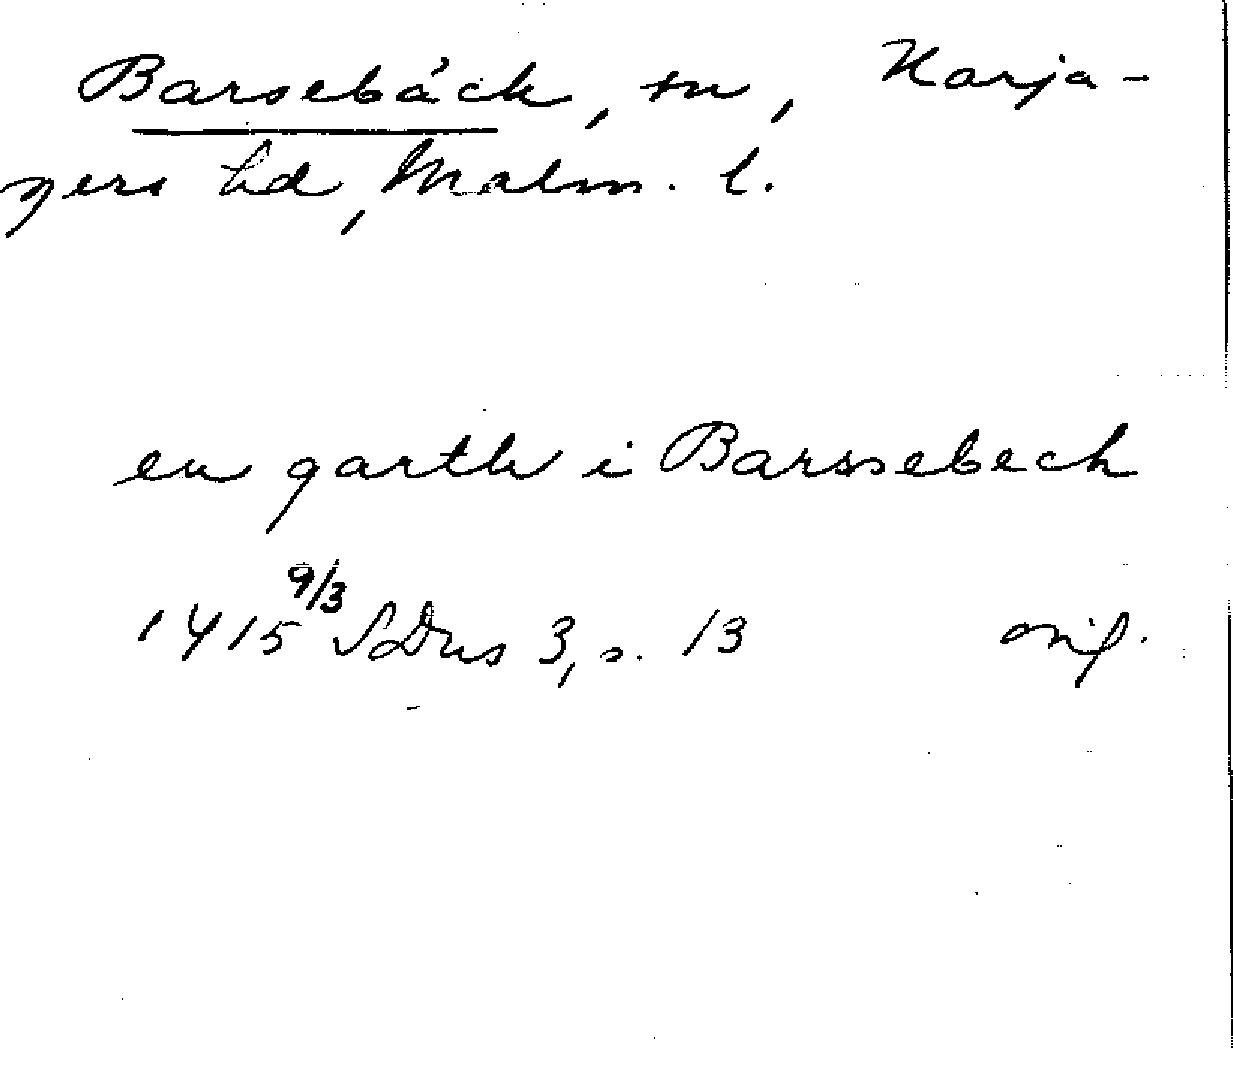 Barsebäck, sn, Harja-
gers hd, Malm. l.
en garth i Barssebech
1415 9/3 SDns 3, s. 13 orig.